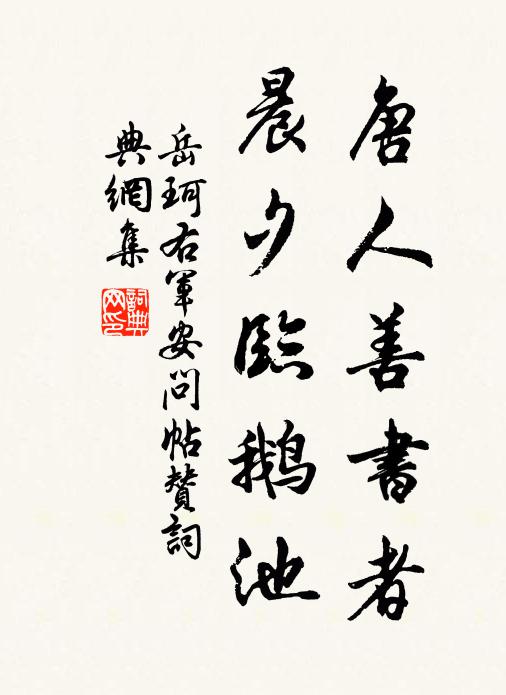 唐人善書者
晨夕臨鵝池
岳珂右軍安問帖贊詞
典網集
詞典網印